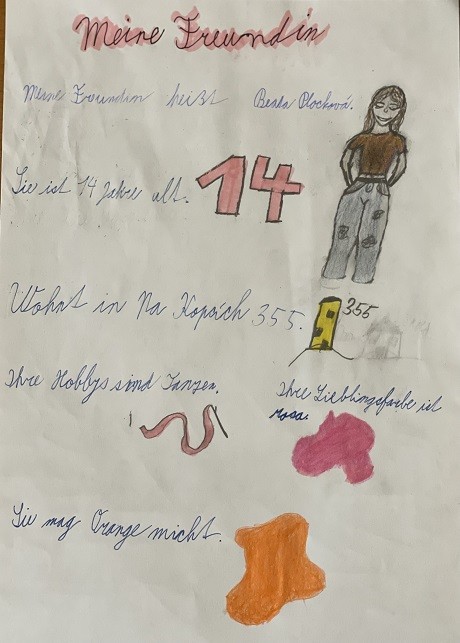 Meine Freundin
Meine Freundin heißt Beata Plocková.
Sie ist 14 Jahre alt. 14
Wohnt in Na Kopcích 355. 355
Ihre Hobbys sind Tanzen.
Ihre Lieblingsfarbe ist
rosa.
Sie mag Orange nicht.